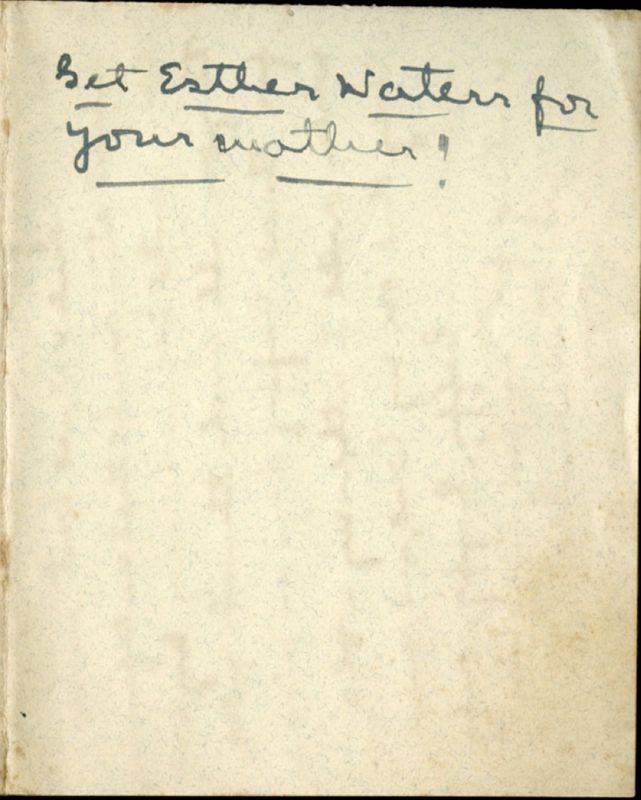 Get Esther Waters for
your mother!